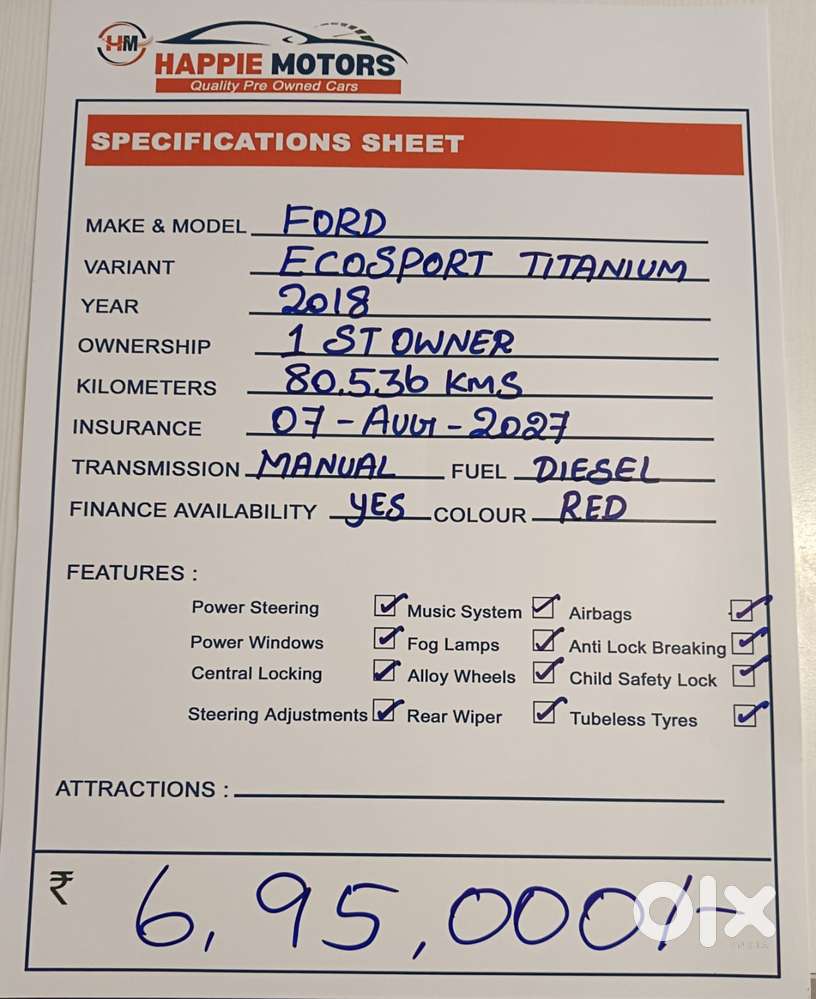 HM
HAPPIE MOTORS
Quality Pre Owned Cars
SPECIFICATIONS SHEET
MAKE & MODEL FORD
VARIANT ECOSPORT TITANIUM
YEAR 2018
OWNERSHIP 1 ST OWNER
KILOMETERS 80,536 KMS
INSURANCE 07-AUG-2027
TRANSMISSION MANUAL FUEL DIESEL
FINANCE AVAILABILITY YES COLOUR RED
FEATURES :
Power Steering Music System Airbags
Power Windows Fog Lamps Anti Lock Breaking
Central Locking Alloy Wheels Child Safety Lock
Steering Adjustments Rear Wiper Tubeless Tyres
ATTRACTIONS :
₹ 6,95,000/-
olx